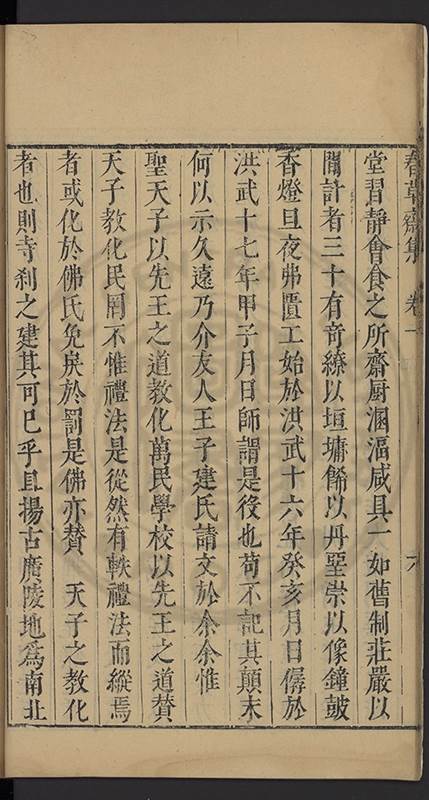 春草齋集　卷一　六
堂習靜會食之所齋厨溷湢咸具一如舊制莊嚴以
間計者三十有奇繚以垣墉餙以丹堊崇以像鐘皷
香燈旦夜弗匱工始於洪武十六年癸亥月日僝於
洪武十七年甲子月日師謂是役也苟不記其顛末
何以示久遠乃介友人王子建氏請文於余余惟
聖天子以先王之道教化萬民學校以先王之道賛
天子教化民罔不惟禮法是從然有軼禮法而縱焉
者或化於佛氏免戾於罰是佛亦賛　天子之教化
者也則寺刹之建其可已乎且揚古廣陵地爲南北